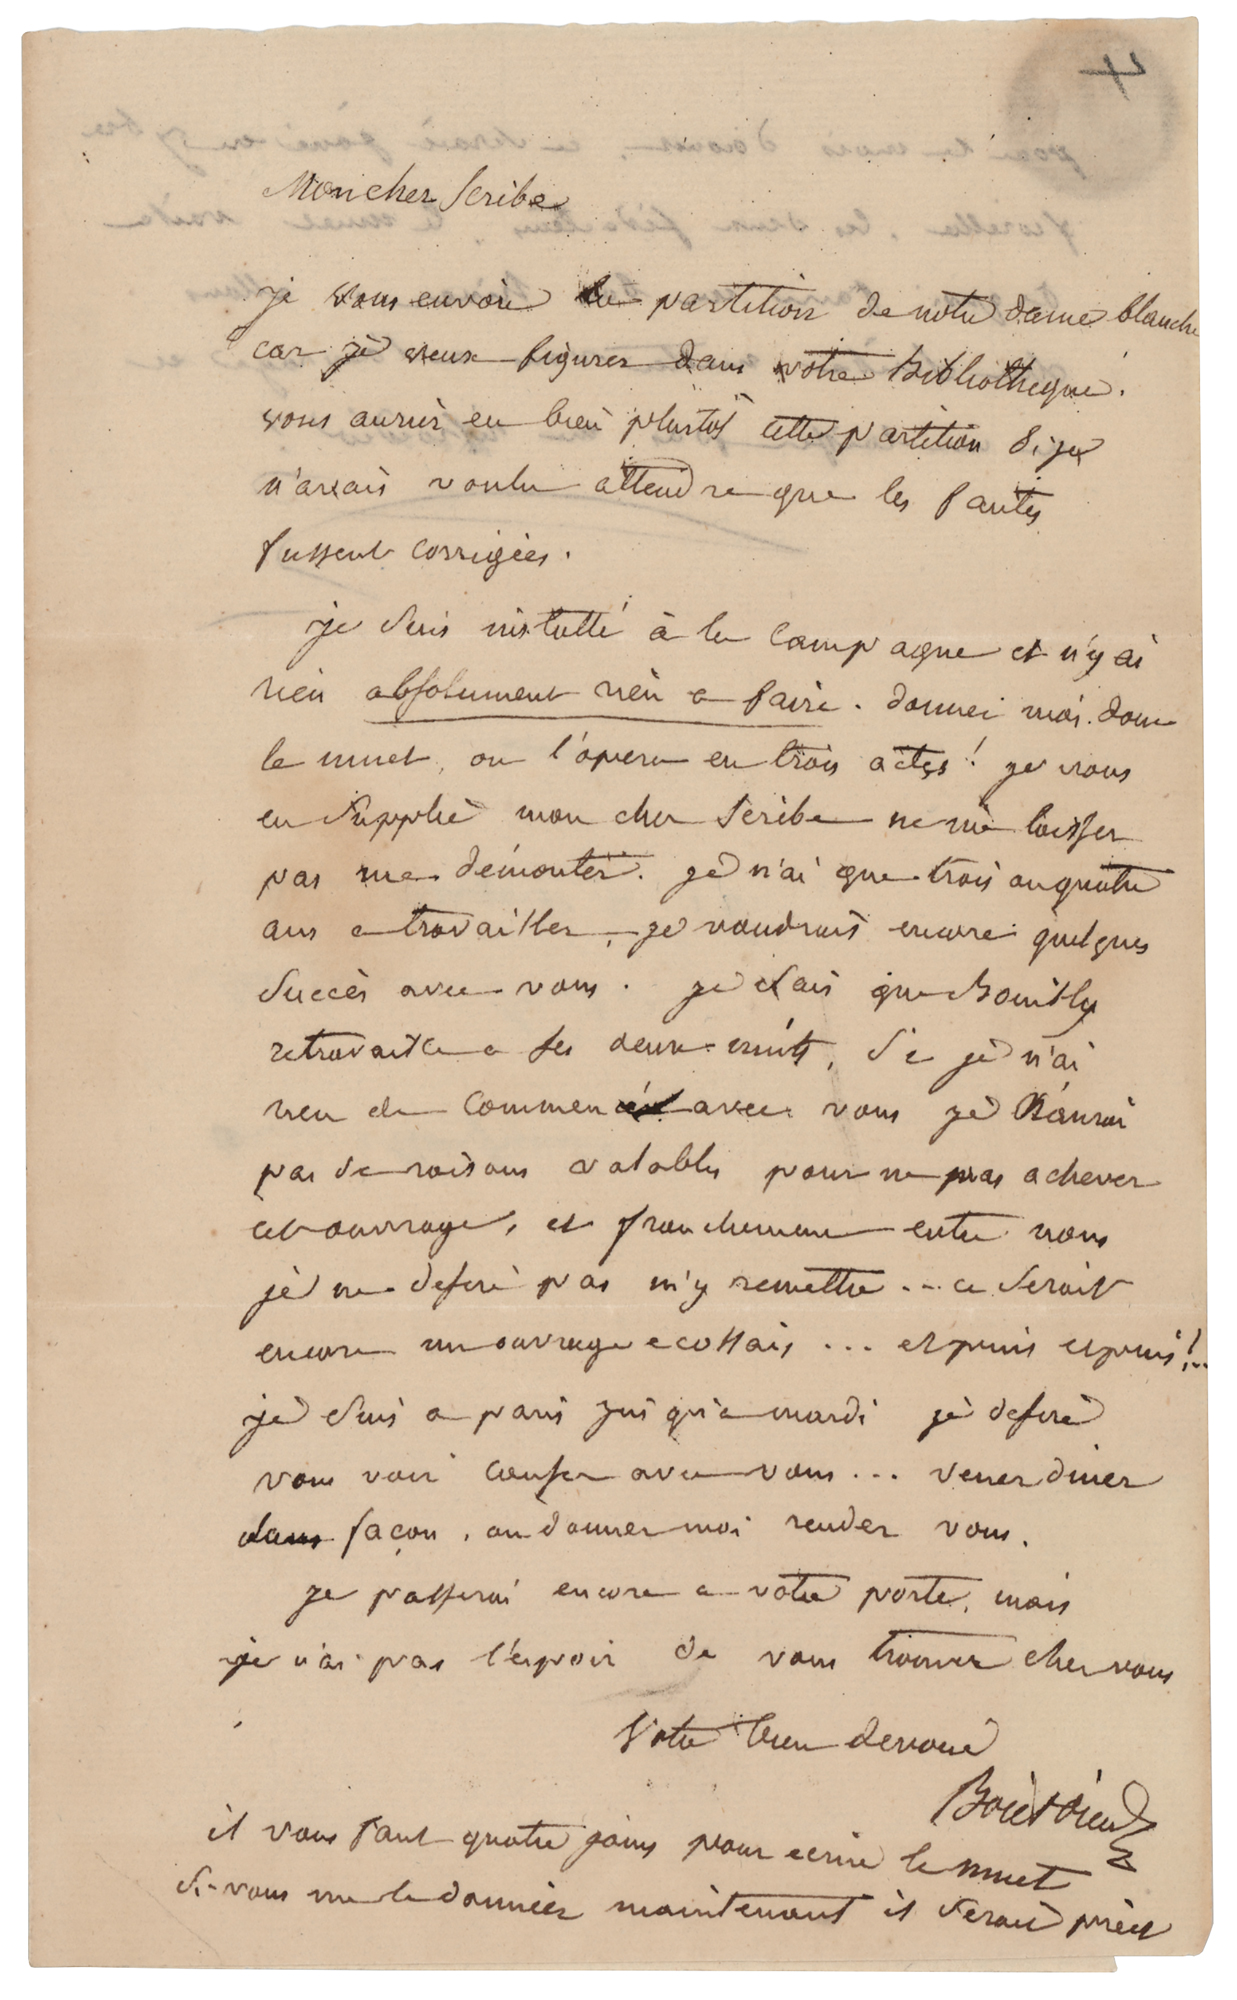 4
Mon cher Scribe
je vous envoie la partition de notre dame blanche
car je veux figurer dans votre Bibliotheque.
vous auriez eu bien plustôt cette partition si je
n'avais voulu attendre que les fautes
fussent corrigées.
je suis installé à la campagne et n'y ai
rien absolument rien a faire. donnez moi donc
le muet, ou l'opera en trois actes! je vous
en supplie mon cher Scribe ne me laissez
pas me démonter. je n'ai que trois ou quatre
ans a travailler, je voudrais encore quelques
succès avec vous. je sais que Bouilly
retravaille a ses deux nuits, si je n'ai
rien de commencé avec vous je n'aurai
pas de raisons valables pour ne pas achever
cet ouvrage, et franchement entre nous
je ne desire pas m'y remettre... ce serait
encore un ouvrage ecossais... et puis et puis!...
je suis a paris jusqu'a mardi je desire
vous voir causer avec vous... venez diner
sans façon, ou donnez moi rendez vous.
je passerai encore a votre porte, mais
je n'ai pas l'espoir de vous trouver chez vous
Votre bien devoué
Boieldieu
il vous faut quatre jours pour ecrire le muet
si vous me le donniez maintenant il serait prêt